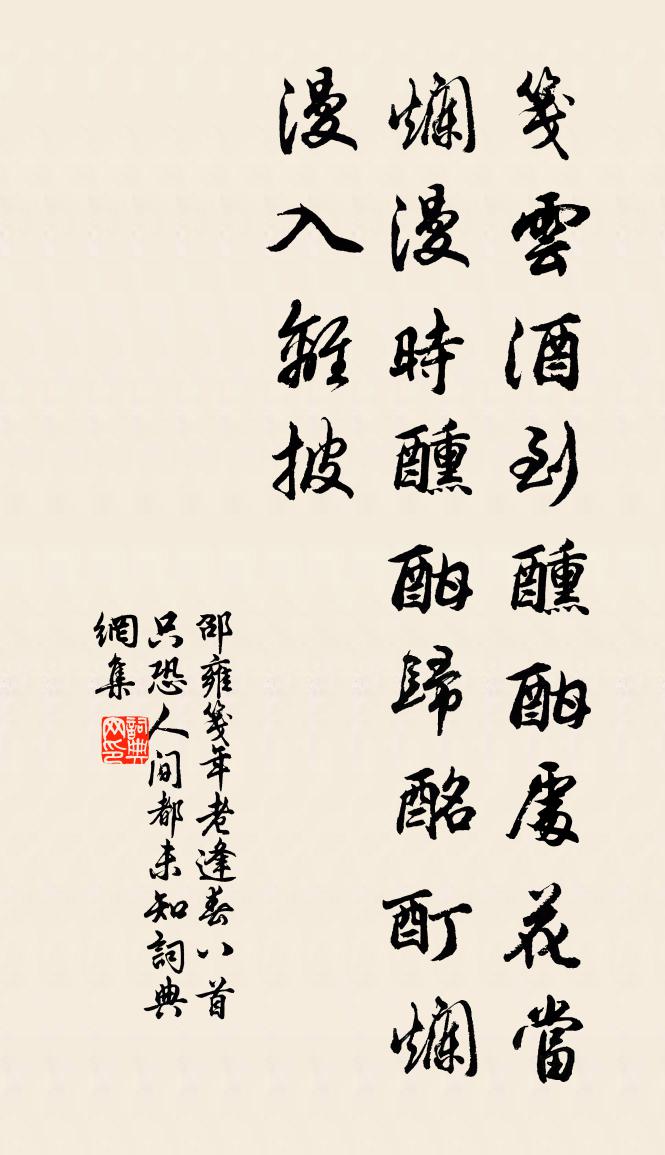 箋雲酒到醺酣處花當
爛漫時醺酣歸酩酊爛
漫入離披
邵雍箋年老逢春八首
只恐人间都未知詞典
網集
詞典
网印